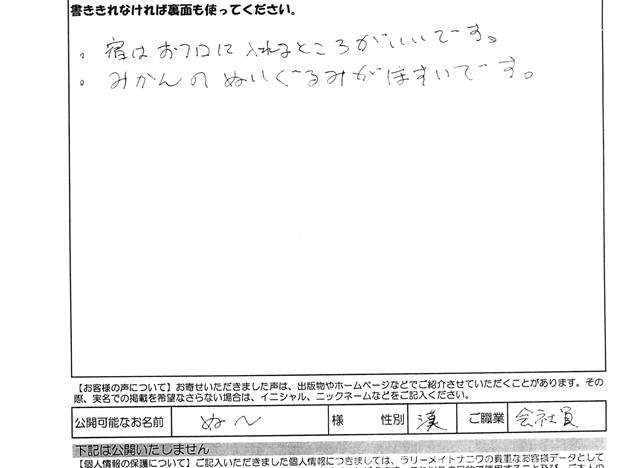 書ききれなければ裏面も使ってください。
。宿はおフロに入れるところがいいでーす。
。みかんのぬいぐるみがほすいでーす。
【お客様の声について】お寄せいただきました声は、出版物やホームページなどでご紹介させていただくことがあります。その
際、実名での掲載を希望なさらない場合は、イニシャル、ニックネームなどをご記入ください。
公開可能なお名前 ぬ〜 様 性別 漢 ご職業 会社員
下記は公開いたしません
【個人情報の保護について】ご記入いただきました個人情報につきましては、ラリーメイトナニワの貴重なお客様データとして